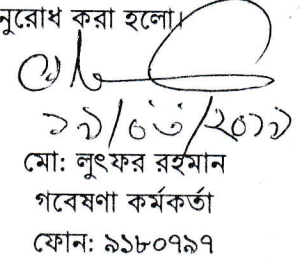 নুরোধ করা হলো।
মো: লুৎফর রহমান
গবেষণা কর্মকর্তা
ফোন: ৯১৮০৭৯৭